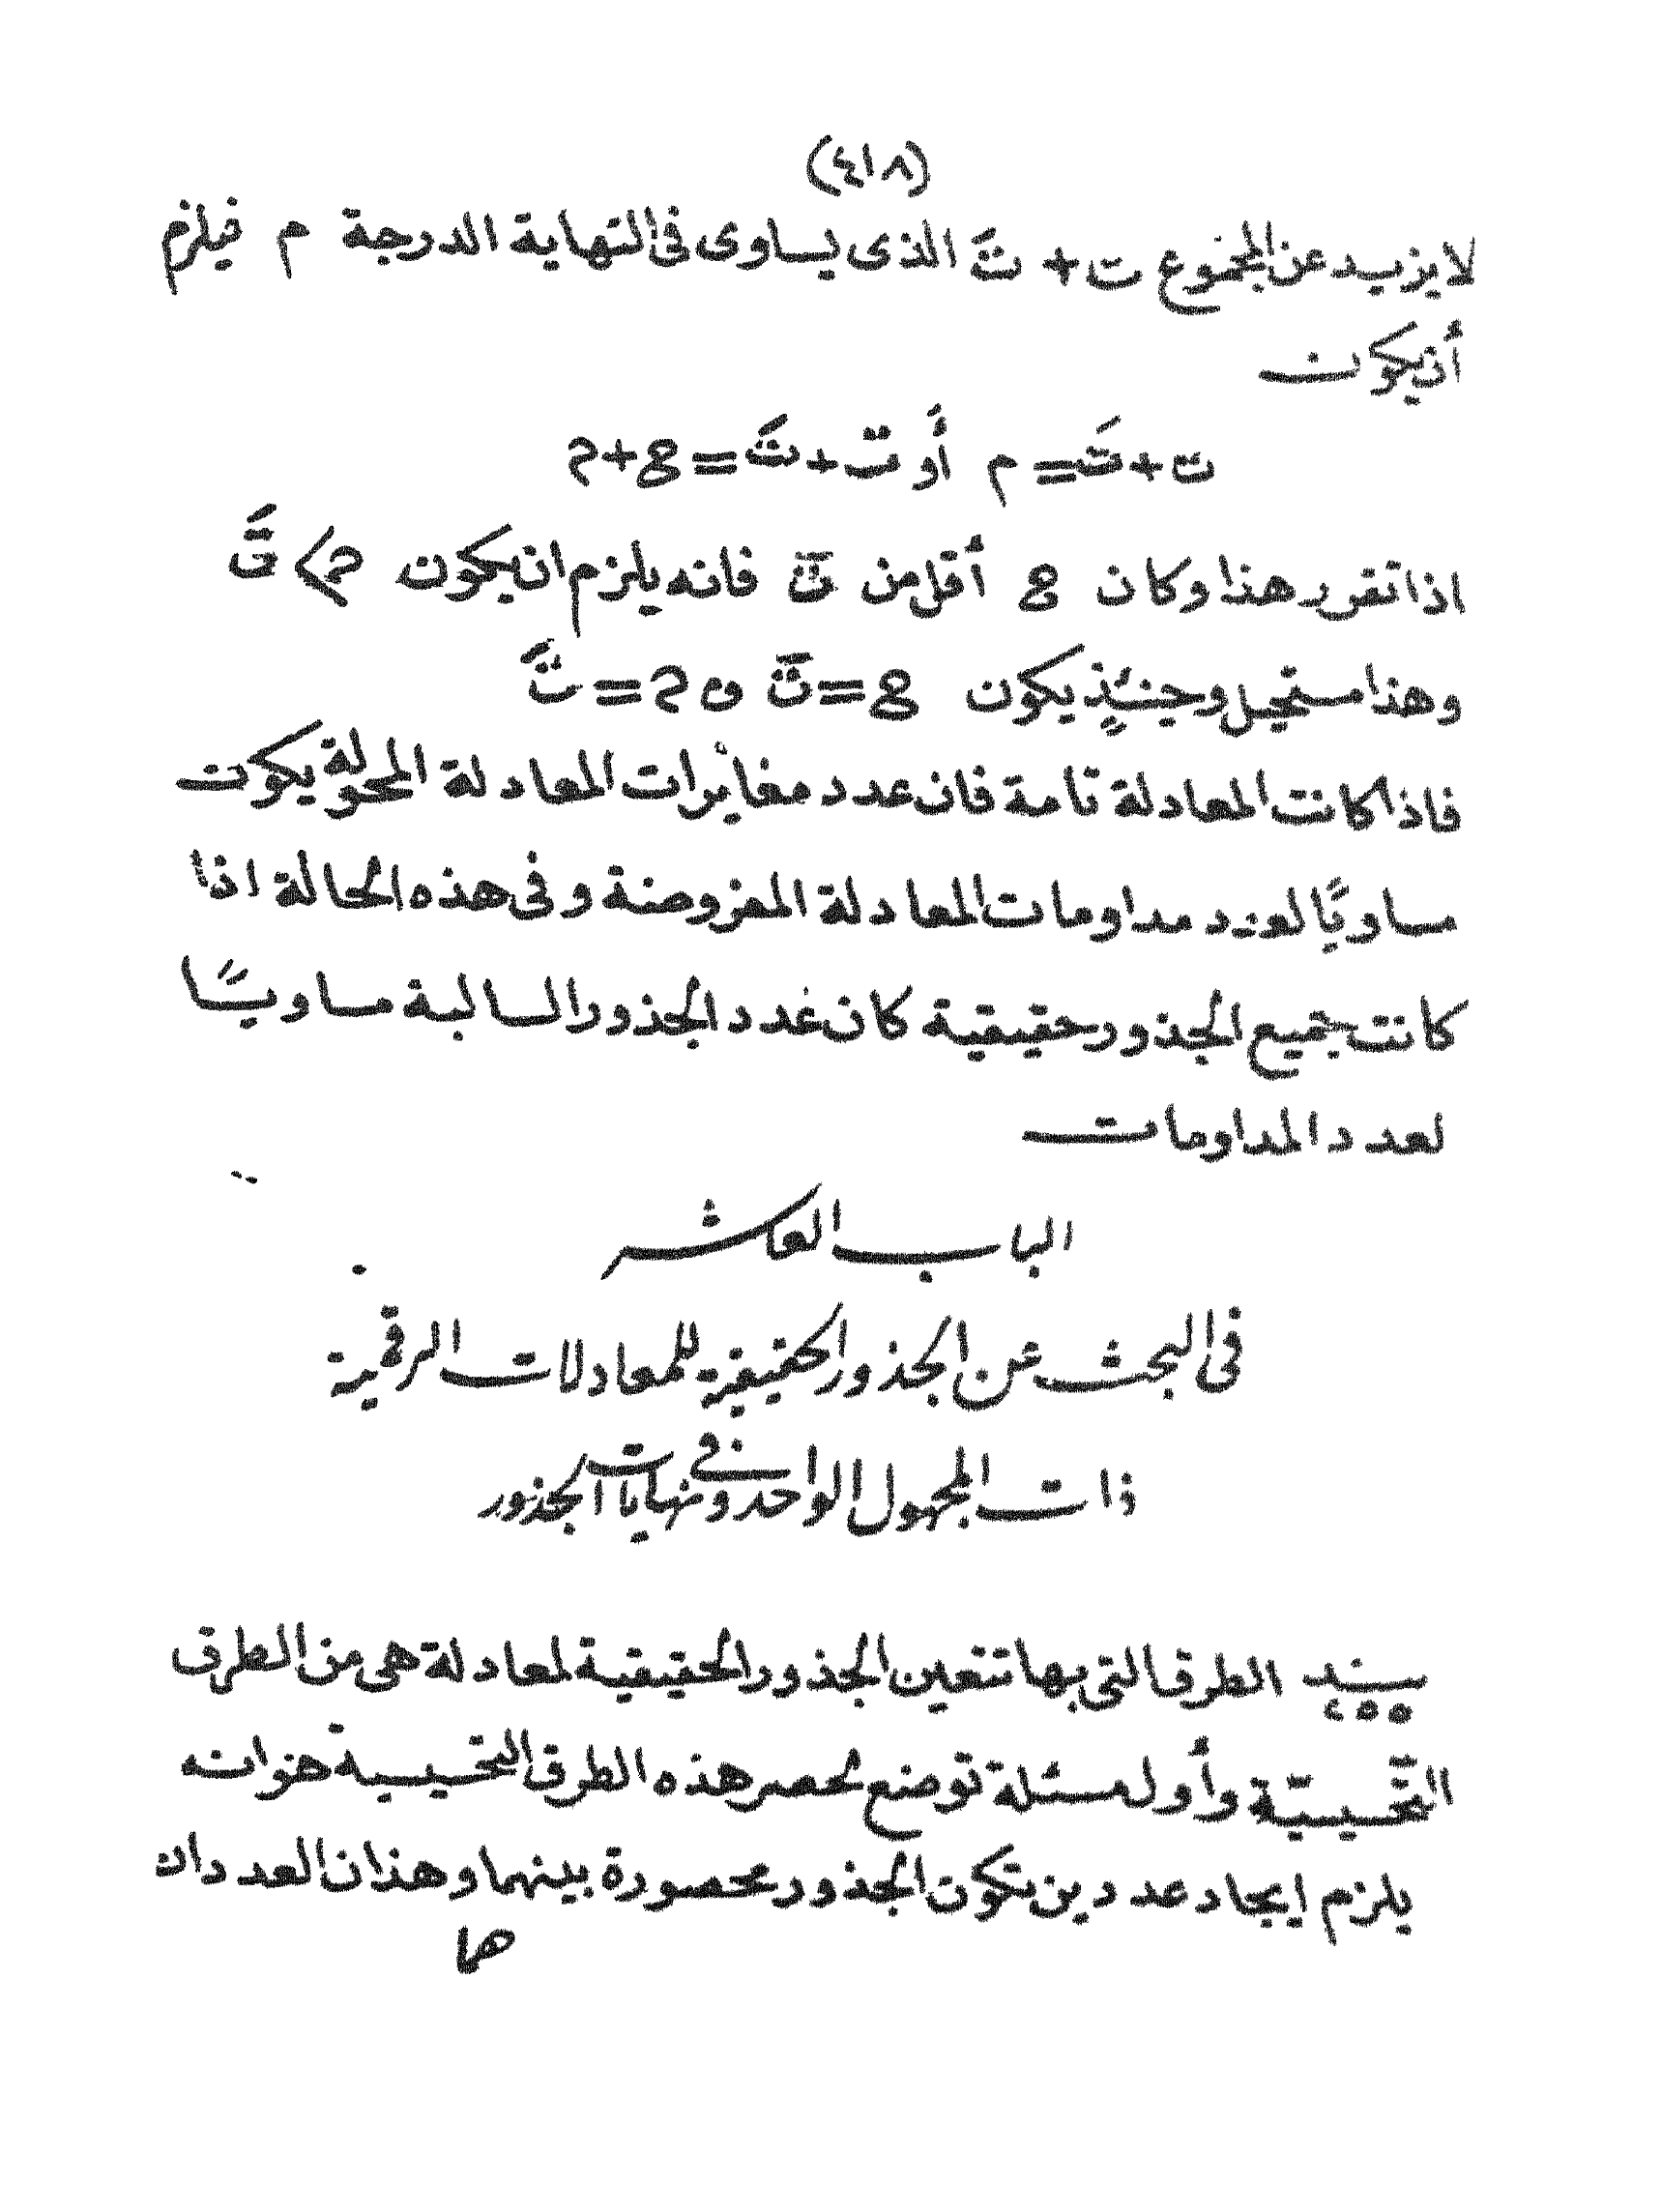 (٤١٨)
لا يزيد عن المجموع ت + تَ الذى يساوى فى النهاية الدرجة م فيلزم
أن يكون
ت + تَ = م أو ت + تَ = ع + م
اذا تقرر هذا وكان ع أقل من ت فانه يلزم ان يكون م > تَ
وهذا مستحيل وحينئذٍ يكون ع = ت و م = تَ
فاذا كانت المعادلة تامة فان عدد مغايرات المعادلة المحولة يكون
مساويًا لعدد مداومات المعادلة المفروضة وفى هذه الحالة اذا
كانت جميع الجذور حقيقية كان عدد الجذور السالبة مساويًا
لعدد المداومات
الباب العاشر
فى البحث عن الجذور الحقيقية للمعادلات الرقمية
ذات المجهول الواحد وفى نهايات الجذور
بند ٤٥٥ الطرق التى بها تتعين الجذور الحقيقية لمعادلة هى من الطرق
التخسيسيّة وأول مسئلة توضع لحصر هذه الطرق التخسيسية هو انه
يلزم إيجاد عددين تكون الجذور محصورة بينهما وهذان العددان
هما